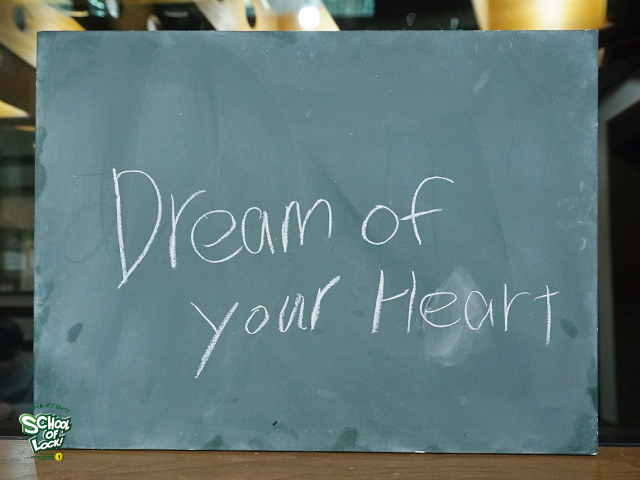 Dream of
your Heart
SCHOOL
OF
LOCK!